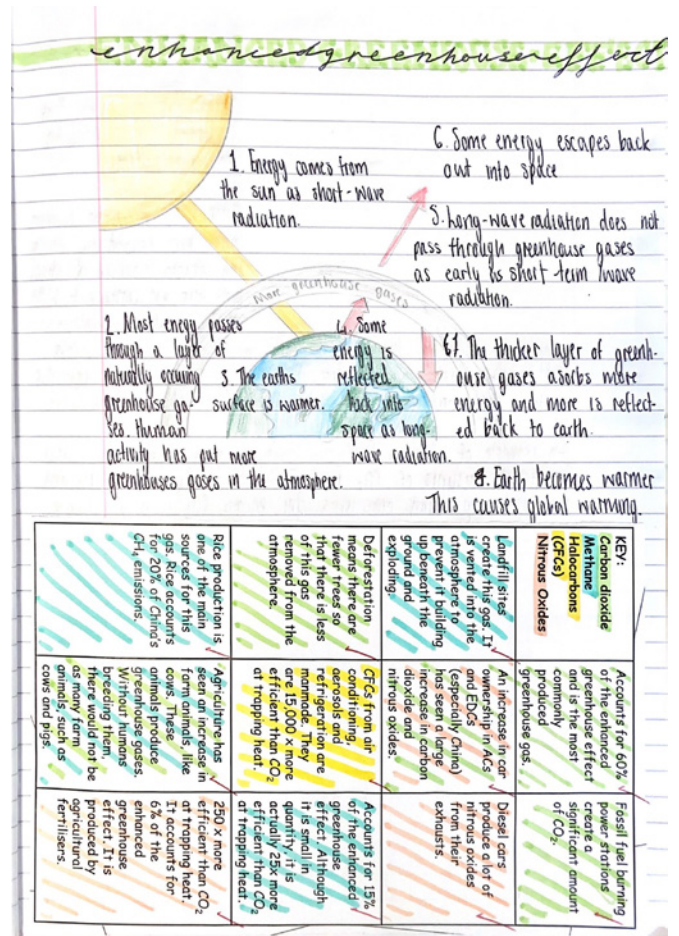 enhanced greenhouse effect
1. Energy comes from
the sun as short-wave
radiation.
6. Some energy escapes back
out into space
5. Long-wave radiation does not
pass through greenhouse gases
as early as short term wave
radiation.
More greenhouse gases
2. Most energy passes
through a layer of
naturally occuring
greenhouse ga-
ses. Human
activity has put more
greenhouses gases in the atmosphere.
3. The earths
surface is warmer.
4. Some
energy is
reflected
back into
space as long-
wave radiation.
67. The thicker layer of greenh-
ouse gases asorbs more
energy and more is reflect-
ed back to earth.
8. Earth becomes warmer
This causes global warming.
KEY:
Carbon dioxide
Methane
Halocarbons
(CFCs)
Nitrous Oxides
Accounts for 60%
of the enhanced
greenhouse effect
and is the most
commonly
produced
greenhouse gas.
Fossil fuel burning
power stations
create a
significant amount
of CO₂.
Landfill sites
create this gas. It
is vented into the
atmosphere to
prevent it building
up beneath the
ground and
exploding.
An increase in car
ownership in ACs
and EDCs
(especially China)
has seen a large
increase in carbon
dioxide and
nitrous oxides.
Diesel cars
produce a lot of
nitrous oxides
from their
exhausts.
Deforestation
means there are
fewer trees so
that there is less
of this gas
removed from the
atmosphere.
CFCs from air
conditioning,
aerosols and
refrigeration are
manmade. They
are 15,000 x more
efficient than CO₂
at trapping heat.
Accounts for 15%
of the enhanced
greenhouse
effect. Although
it is small in
quantity it is
actually 25x more
efficient than CO₂
at trapping heat.
Rice production is
one of the main
sources for this
gas. Rice accounts
for 20% of China's
CH₄ emissions.
Agriculture has
seen an increase in
farm animals, like
cows. These
animals produce
greenhouse gases.
Without humans
breeding them,
there would not be
as many farm
animals, such as
cows and pigs.
250 x more
efficient than CO₂
at trapping heat.
It accounts for
6% of the
enhanced
greenhouse
effect. It is
produced by
agricultural
fertilisers.